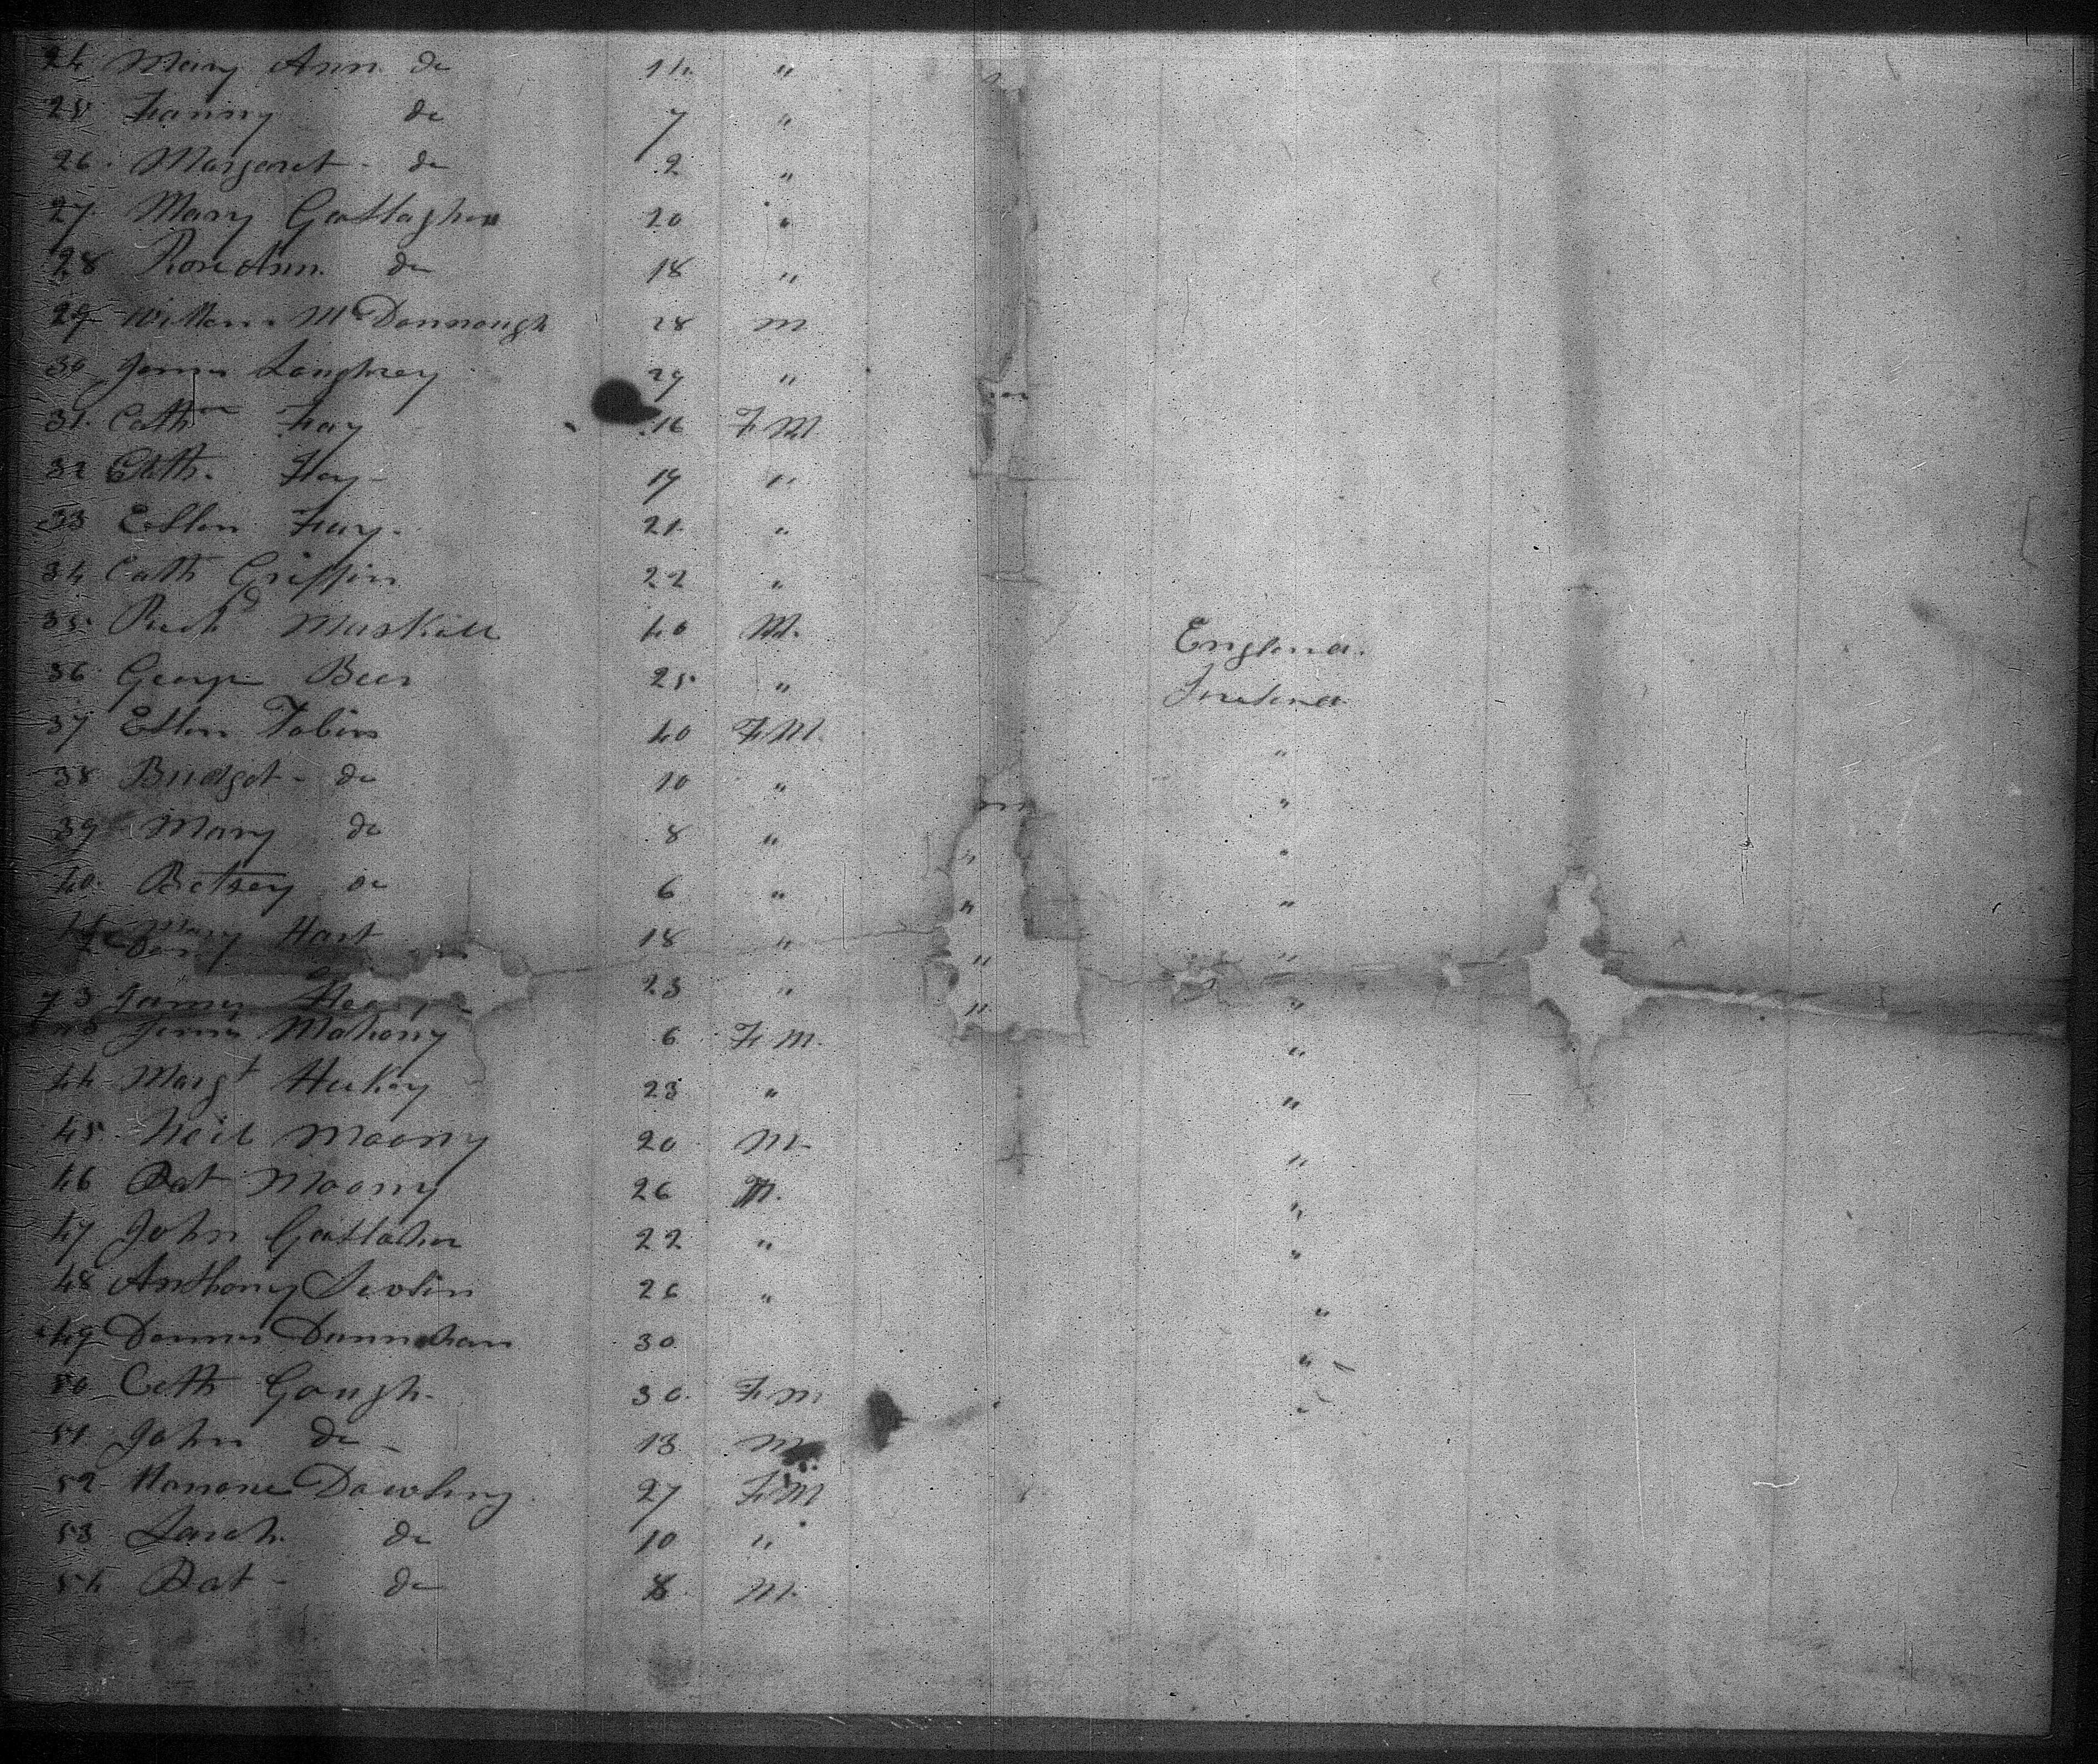 24 Mary Ann do 14 "
25 Fanny do 7 "
26 Margaret - do 2 "
27 Mary Gallagher 20 "
28 Rose Ann do 18 "
29 William McDonnough 28 m
30 James Loughrey 29 "
31 Cathne Fay 16 F M
32 Cath. Fay - 19 "
33 Ellen Fay. 21 "
34 Cath Griffin 22 "
35 Richd Maskill 40 M. England.
36 George Beer 25 " Ireland
37 Ellen Tobin 40 F M. "
38 Bridget - do 10 " "
39 Mary do 8 " " "
40 Betsey do 6 " " "
Mary Hart 18 " " "
James 23 " " "
James Mahony 6 F M. "
44 Margt Hickey 23 " "
45 Neil Moony 20 M "
46 Pat Moony 26 M. "
47 John Gallaher 22 " "
48 Anthony 26 " "
49 Dennis Dunnahan 30 "
50 Cath Gough. 30. F M "
51 John do - 13 M
52 Honora Dowling 27 F M
53 Sarah do 10 "
54 Pat - do 8 M.